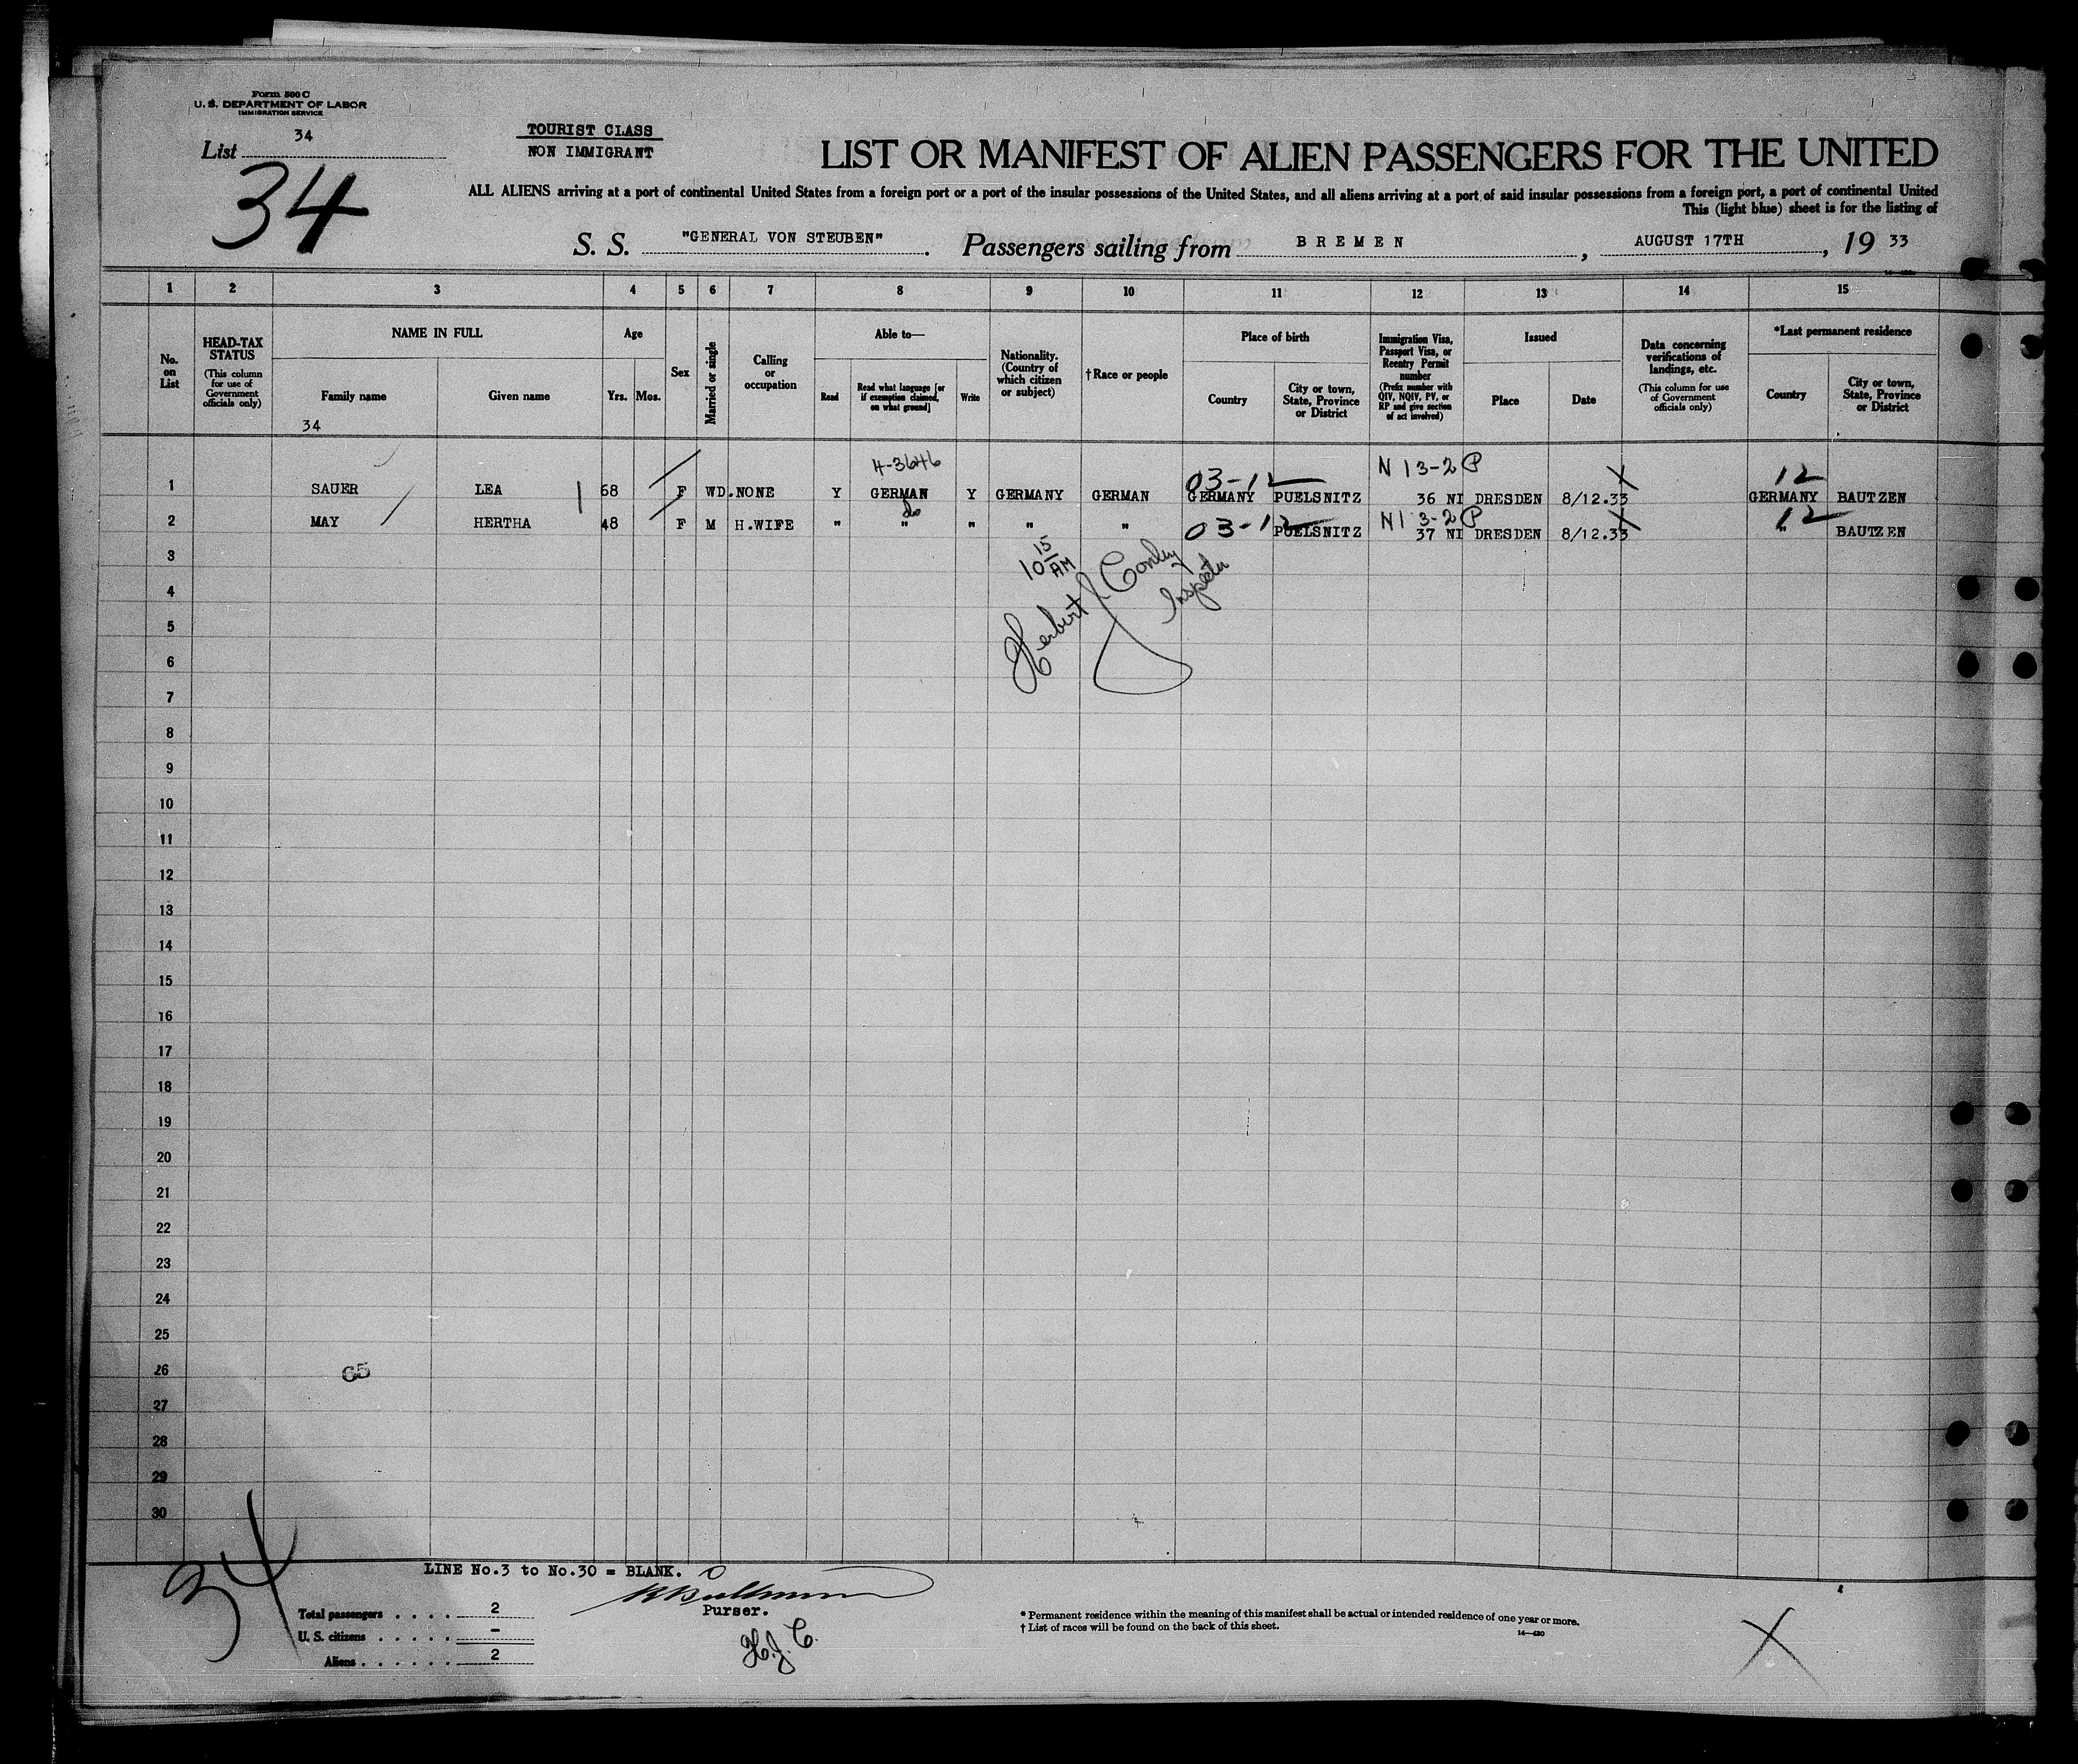 Form 500 C
U. S. DEPARTMENT OF LABOR
IMMIGRATION SERVICE
List 34
34
TOURIST CLASS
NON IMMIGRANT
LIST OR MANIFEST OF ALIEN PASSENGERS FOR THE UNITED
ALL ALIENS arriving at a port of continental United States from a foreign port or a port of the insular possessions of the United States, and all aliens arriving at a port of said insular possessions from a foreign port, a port of continental United
This (light blue) sheet is for the listing of
S. S. "GENERAL VON STEUBEN". Passengers sailing from BREMEN, AUGUST 17TH, 19 33
1 2 3 4 5 6 7 8 9 10 11 12 13 14 15
No. on List
HEAD-TAX STATUS (This column for use of Government officials only)
NAME IN FULL
Family name
Given name
34
Age
Yrs. Mos.
Sex
Married or single
Calling or occupation
Able to—
Read
Read what language [or if exemption claimed, on what ground]
Write
Nationality. (Country of which citizen or subject)
†Race or people
Place of birth
Country
City or town, State, Province or District
Immigration Visa, Passport Visa, or Reentry Permit number (Prefix number with QIV, NQIV, PV, or RP and give section of act involved)
Issued
Place
Date
Data concerning verifications of landings, etc. (This column for use of Government officials only)
*Last permanent residence
Country
City or town, State, Province or District
H-3646 03-12 N 13-2 P X 12
1 SAUER LEA 68 F WD. NONE Y GERMAN Y GERMANY GERMAN GERMANY PUELSNITZ 36 NI DRESDEN 8/12.33 GERMANY BAUTZEN
do 03-12 N1 3-2 P X 12
2 MAY HERTHA 48 F M H.WIFE " " " " " PUELSNITZ 37 NI DRESDEN 8/12.33 " BAUTZEN
3
10 15 AM
Herbert J Conley
Inspector
4
5
6
7
8
9
10
11
12
13
14
15
16
17
18
19
20
21
22
23
24
25
26
65
27
28
29
30
34
LINE No.3 to No.30 = BLANK.
Purser.
H.J.C.
Total passengers . . . . 2
U. S. citizens . . . . . –
Aliens . . . . . . 2
* Permanent residence within the meaning of this manifest shall be actual or intended residence of one year or more.
† List of races will be found on the back of this sheet.
14—430
X